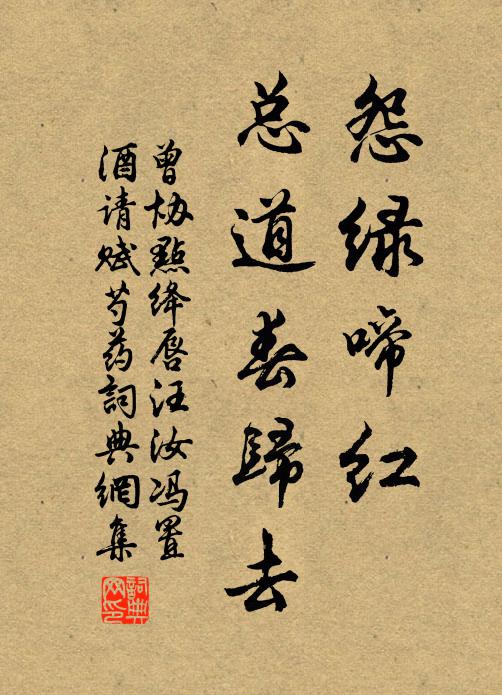 怨绿啼红
总道春归去
曾协點绛唇汪汝冯置
酒请赋芍药詞典網集
詞典网印